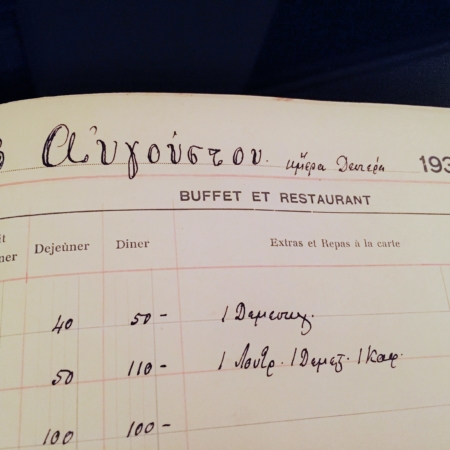 Αὐγούστου. ἡμέρα Δευτέρα 193
BUFFET ET RESTAURANT
Dejeûner Dîner Extras et Repas à la carte
ner
40 50 - 1
50 110 - 1 Λουτρ. 1 1 Καφ.
100 100 -